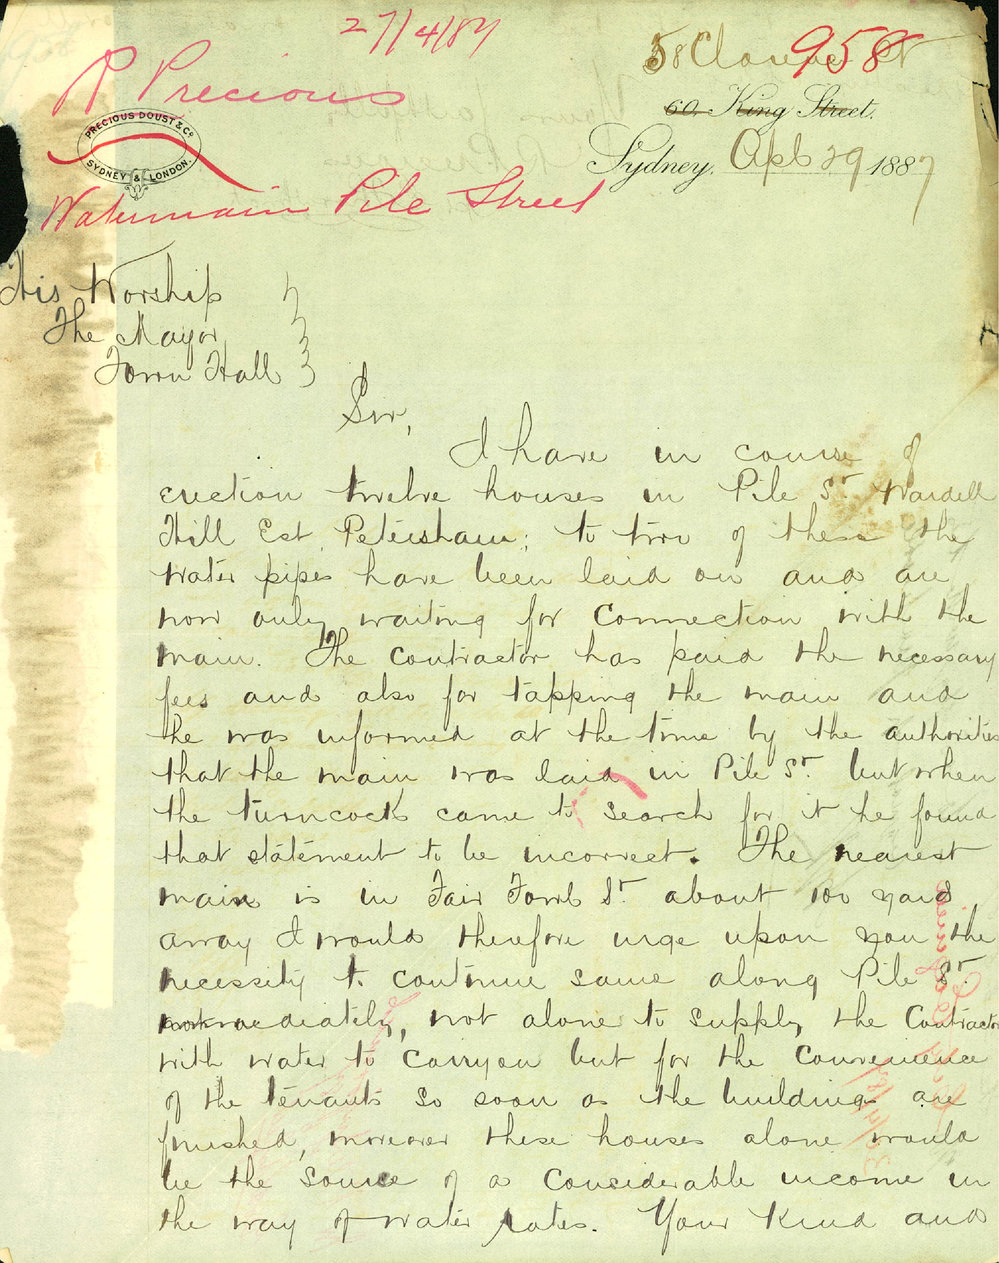 27/4/87
958
R Precious
58 Clarence St
60 King Street.
PRECIOUS DOUST & Co
SYDNEY & LONDON.
Sydney, Apl 29 1887
Watermain Pile Street
His Worship
The Mayor
Town Hall
Sir,
I have in course of
erection twelve houses in Pile St Wardell
Hill Est Petersham; to two of these the
water pipes have been laid on and are
now only waiting for connection with the
main. The contractor has paid the necessary
fees and also for tapping the main and
he was informed at the time by the authorities
that the main was laid in Pile St but when
the turncock came to search for it he found
that statement to be incorrect. The nearest
main is in Fair Fowl St about 100 yards
away I would therefore urge upon you the
necessity to continue same along Pile St
immediately, not alone to supply the Contractor
with water to carry on but for the convenience
of the tenants so soon as the buildings are
finished, moreover these houses alone would
be the source of a considerable income in
the way of water rates. Your kind and